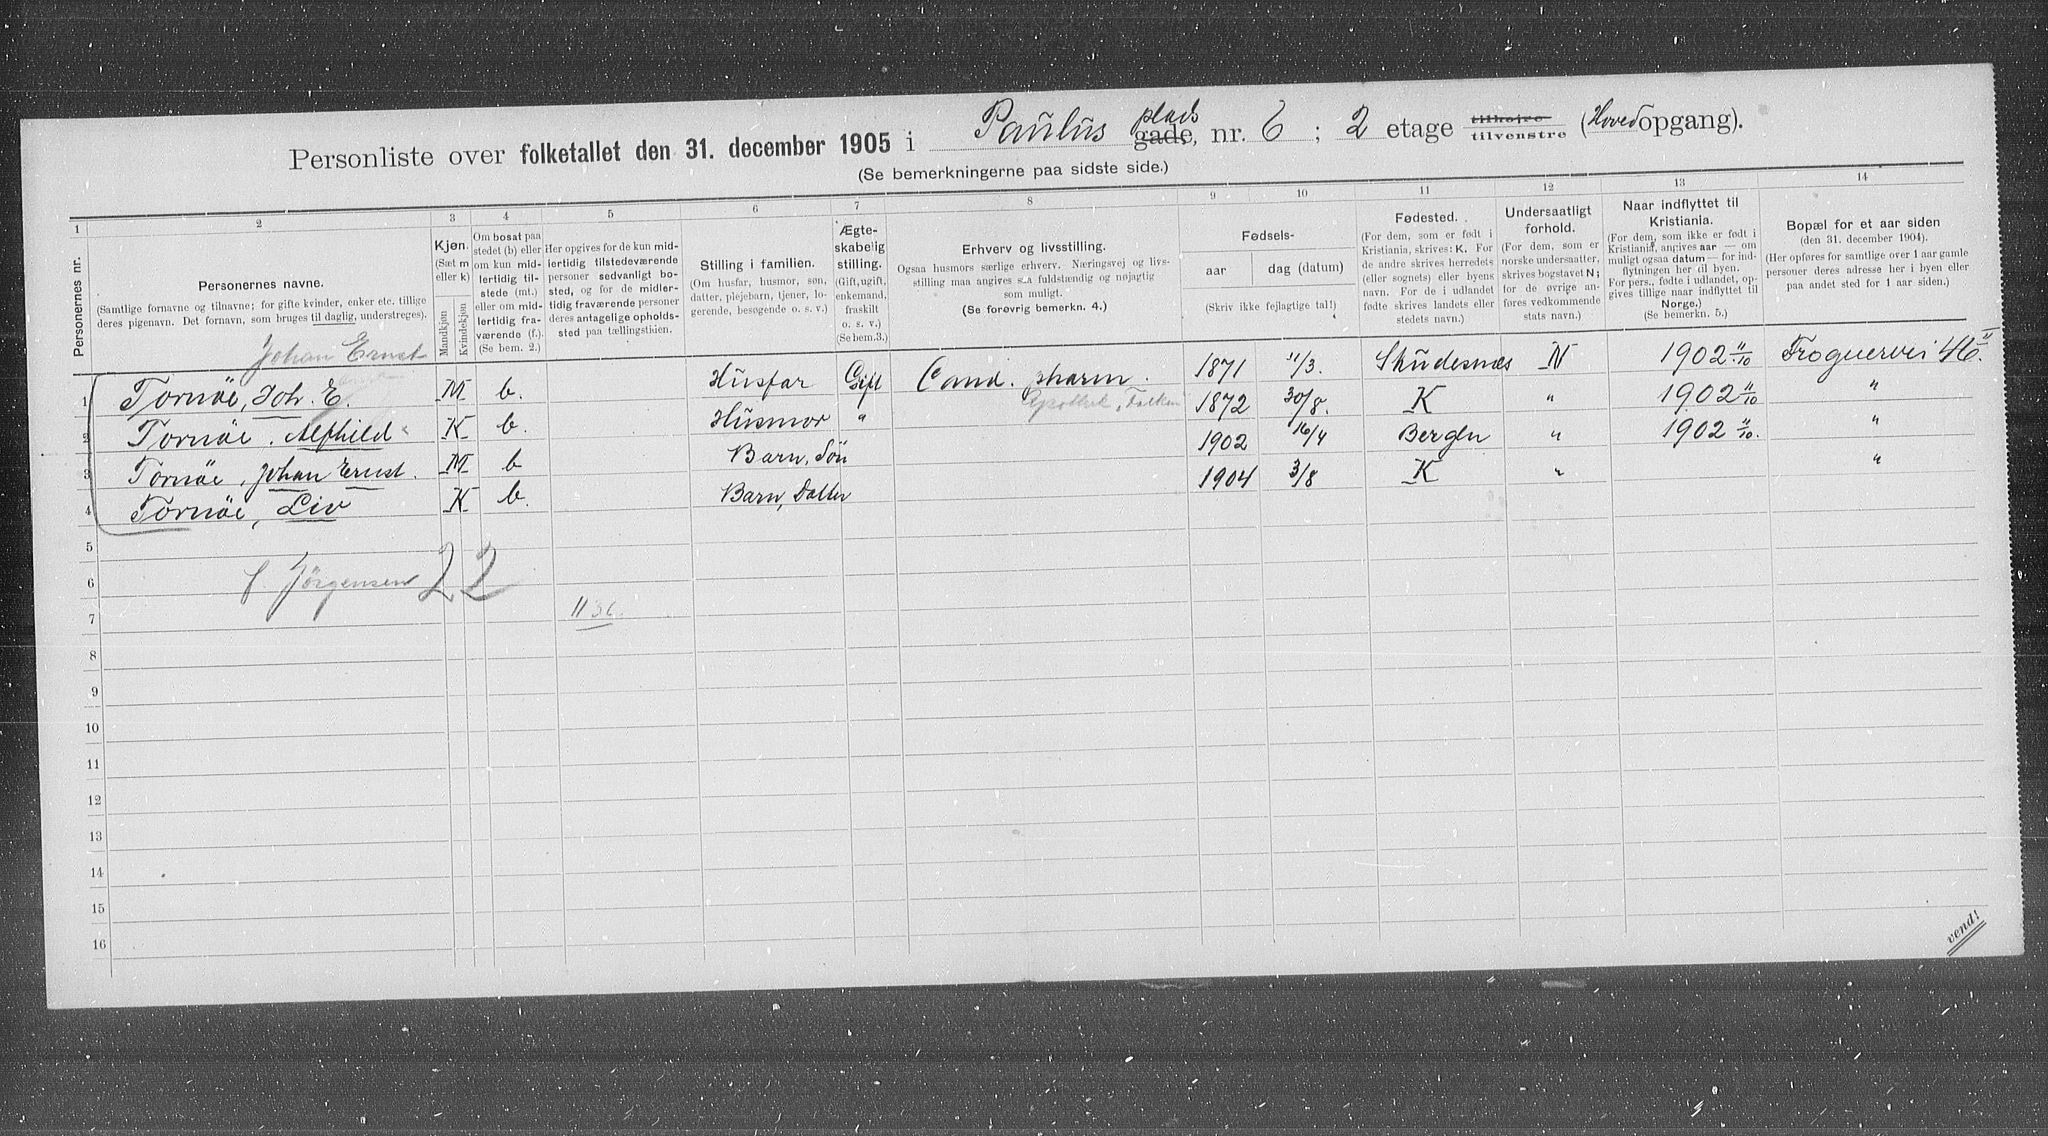 Personliste over folketallet den 31. december 1905 i Paulus plads gade, nr. 6 ; 2 etage tilhøire tilvenstre (Hovedopgang).
(Se bemerkningerne paa sidste side.)
1 2 3 4 5 6 7 8 9 10 11 12 13 14
Personernes nr.
Personernes navne.
(Samtlige fornavne og tilnavne; for gifte kvinder, enker etc. tillige
deres pigenavn. Det fornavn, som bruges til daglig, understreges).
Kjøn.
(Sæt m
eller k)
Mandkjøn
Kvindekjøn
Om bosat paa
stedet (b) eller
om kun mid-
lertidig til-
stede (mt.)
eller om mid-
lertidig fra-
værende (f.).
(Se bem. 2.)
Her opgives for de kun mid-
lertidig tilstedeværende
personer sedvanligt bo-
sted, og for de midler-
tidig fraværende personer
deres antagelige opholds-
sted paa tællingstiden.
Stilling i familien.
(Om husfar, husmor, søn,
datter, plejebarn, tjener, lo-
gerende, besøgende o. s. v.)
Ægte-
skabelig
stilling.
(Gift, ugift,
enkemand,
fraskilt
o. s. v.)
(Se bem. 3.)
Erhverv og livsstilling.
Ogsaa husmors særlige erhverv. Næringsvej og livs-
stilling maa angives saa fuldstændig og nøjagtig
som muligt.
(Se forøvrig bemerkn. 4.)
Fødsels-
aar dag (datum)
(Skriv ikke fejlagtige tal!)
Fødested.
(For dem, som er født i
Kristiania, skrives: K. For
de andre skrives herredets
(eller sognets) eller byens
navn. For de i udlandet
fødte skrives landets eller
stedets navn.)
Undersaatligt
forhold.
(For dem, som er
norske undersaatter,
skrives bogstavet N;
for de øvrige an-
føres vedkommende
stats navn.)
Naar indflyttet til
Kristiania.
(For dem, som ikke er født i
Kristiania, angives aar — om
muligt ogsaa datum — for ind-
flytningen her til byen.
For pers., fødte i udlandet, op-
gives tillige naar indflyttet til
Norge.)
(Se bemerkn. 5.)
Bopæl for et aar siden
(den 31. december 1904).
(Her opføres for samtlige over 1 aar gamle
personer deres adresse her i byen eller
paa andet sted for 1 aar siden.)
Johan Ernst
1 Tornöe, Joh. E. M b. Husfar Gift Cand. pharm. 1871 11/3. Skudesnæs N 1902 11/10 Frognervei 46 II.
2 Tornöe, Alfhild K b. Husmor " 1872 30/8. K " 1902 11/10 "
3 Tornöe, Johan Ernst. M b Barn, Sön 1902 16/4 Bergen " 1902 11/10. "
4 Tornöe, Liv K b. Barn, Datter 1904 3/8 K " "
5
6 f Jörgensen 2 2
7 1136.
8
9
10
11
12
13
14
15
16
vend!